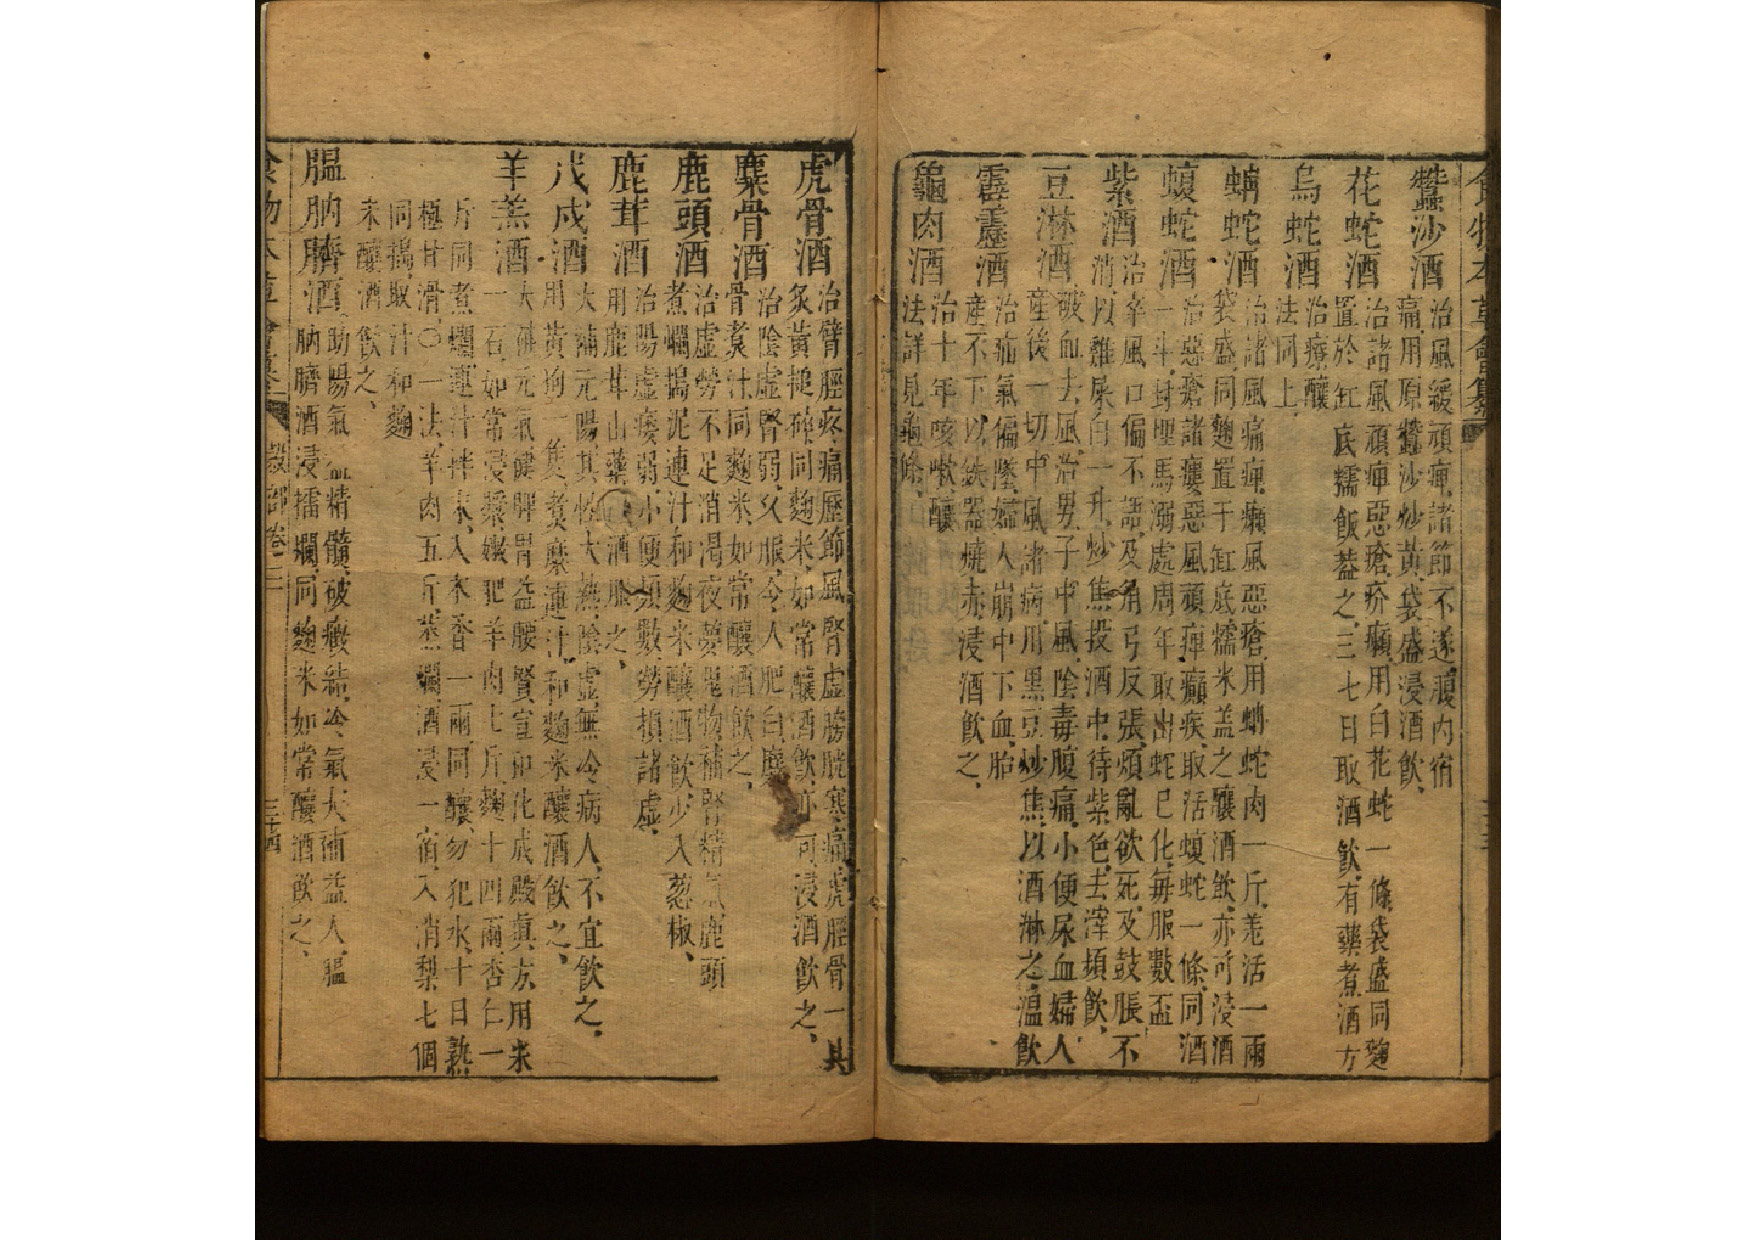 食物本草會纂
蠶沙酒治風緩頑痺、諸節不遂、腹内宿
痛、用原蠶沙炒黃、袋盛浸酒飲、
花蛇酒治諸風頑痺惡瘡疥癩、用白花蛇一條、袋盛同麴
置於缸底、糯飯葢之、三七日取酒飲、有藥煮酒方
烏蛇酒治療釀
法同上、
蚺蛇酒治諸風痛痺、癩風惡瘡、用蚺蛇肉一斤、羌活一兩
袋盛、同麴置于缸底、糯米盖之、釀酒飲、亦可浸酒
蝮蛇酒治惡瘡諸瘻、惡風頑痺癲疾、取活蝮蛇一條、同酒
一斗、封埋馬溺處、周年取出、蛇已化、每服數盃
紫酒治卒風口偏不語、及角弓反張、煩亂欲死、及鼓脹不
消、以雞屎白一升、炒焦投酒中、待紫色、去滓頻飲、
豆淋酒破血去風、治男子中風、陰毒腹痛、小便尿血、婦人
産後一切中風諸病、用黑豆炒焦、以酒淋之、溫飲
霹靂酒治疝氣偏墜、婦人崩中下血、胎
産不下、以鉄器燒赤、浸酒飲之、
龜肉酒治十年咳嗽、釀
法詳見龜條、
虎骨酒治臂脛疼痛、歷節風、腎虛膀胱寒痛、虎脛骨一具
炙黃搥碎、同麴米、如常釀酒飲、亦可浸酒飲之、
麋骨酒治陰虛腎弱、久服、令人肥白、麋
骨煮汁、同麴米、如常釀酒飲之、
鹿頭酒治虛勞不足、消渴夜夢鬼物、補腎精氣、鹿頭
煮爛搗泥、連汁和麴米釀酒飲、少入葱椒、
鹿茸酒治陽虛痿弱、小便頻數、勞損諸虛、
用鹿茸山藥浸酒服之、
戊戌酒大補元陽、其性大熱、陰虛無冷病人、不宜飲之、
用黃狗一隻、煮糜連汁、和麴米釀酒飲之、
羊羔酒大補元氣、健脾胃、益腰腎、宣和化成殿真方、用米
一石、如常浸漿、嫩肥羊肉七斤、麴十四兩、杏仁一
斤、同煮爛、連汁拌末、入木香一兩、同釀、勿犯水、十日熟、
極甘滑、〇一法、羊肉五斤、蒸爛、酒浸一宿、入消梨七個
同搗取汁和麴
米釀酒飲之、
膃肭臍酒助陽氣、益精髓、破癥結、冷氣、大補益人、膃
肭臍酒浸擂爛、同麴米如常釀酒飲之、
食物本草會纂 穀部卷二 三十四